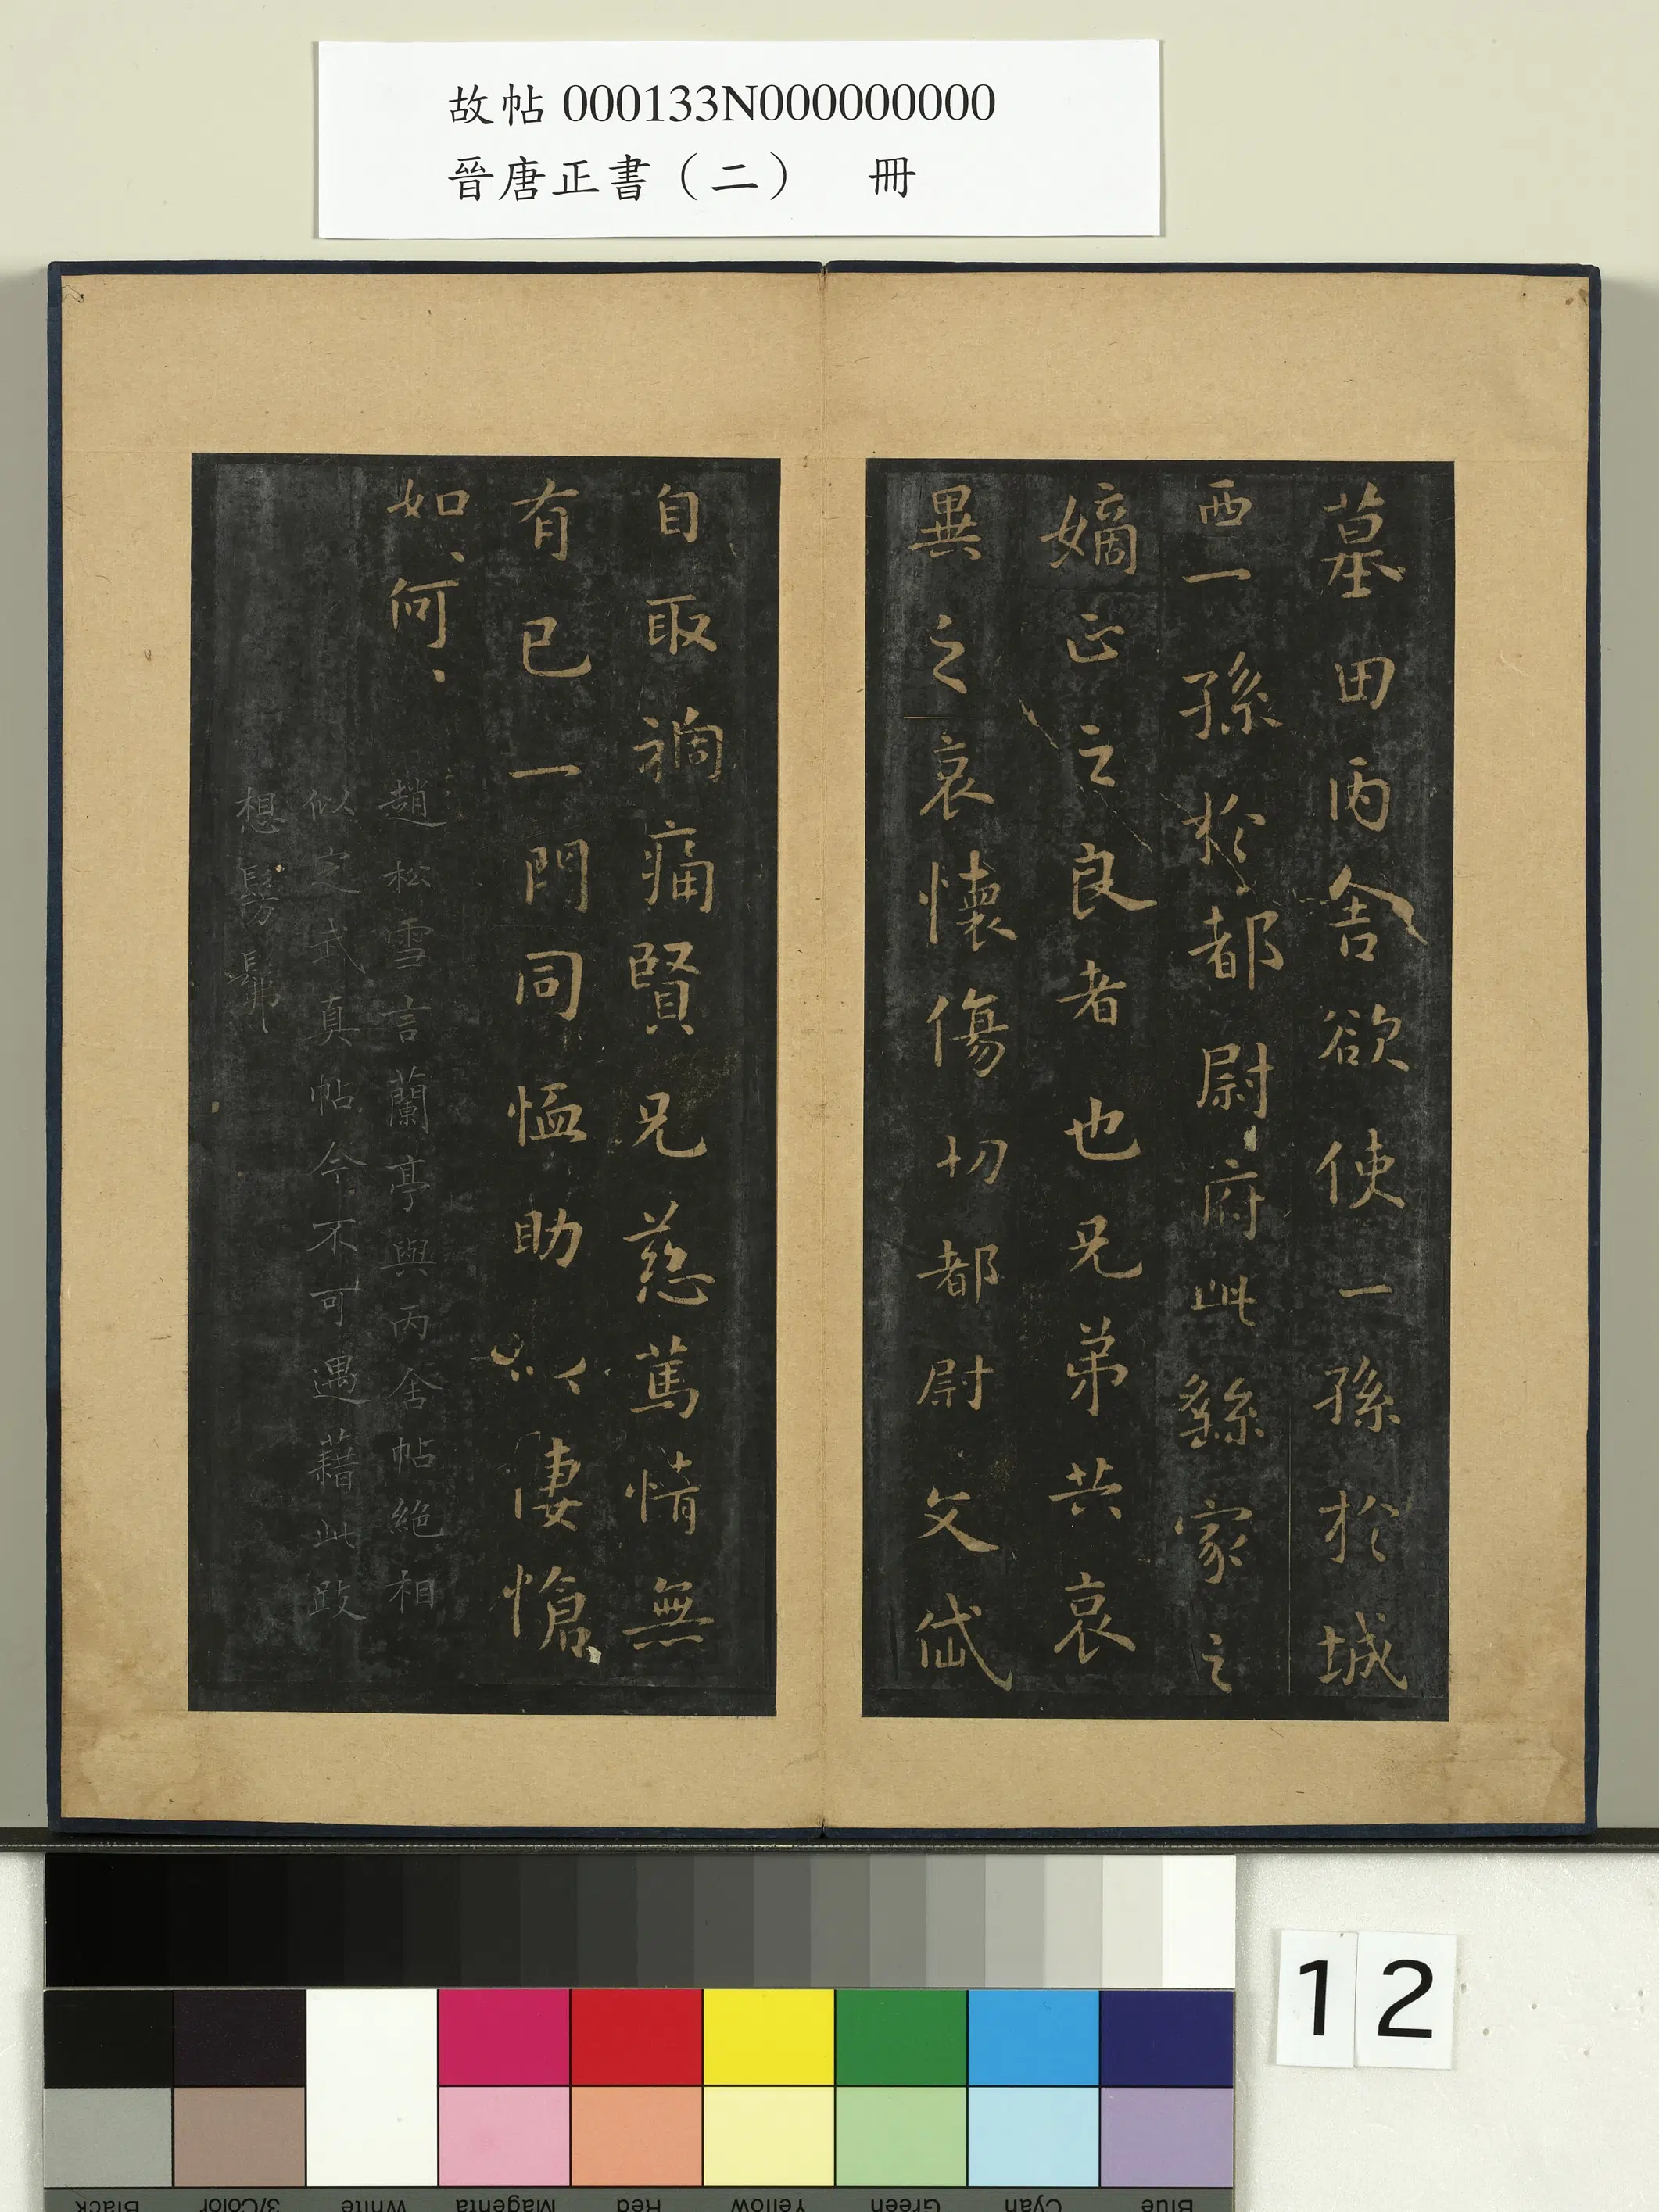 故帖 000133N000000000
晉唐正書（二） 冊
墓田丙舍欲使一孫於城
西一孫於都尉府此繇家之
嫡正之良者也兄弟共哀
異之哀懷傷切都尉文岱
自取禍痛賢兄慈篤情無
有已一門同恤助以悽愴
如、何、
趙松雪言蘭亭與丙舍帖絶相
似定武真帖今不可遇藉此跋
想髣髴
12
Black 3/Color White Magenta Red Yellow Green Cyan Blue